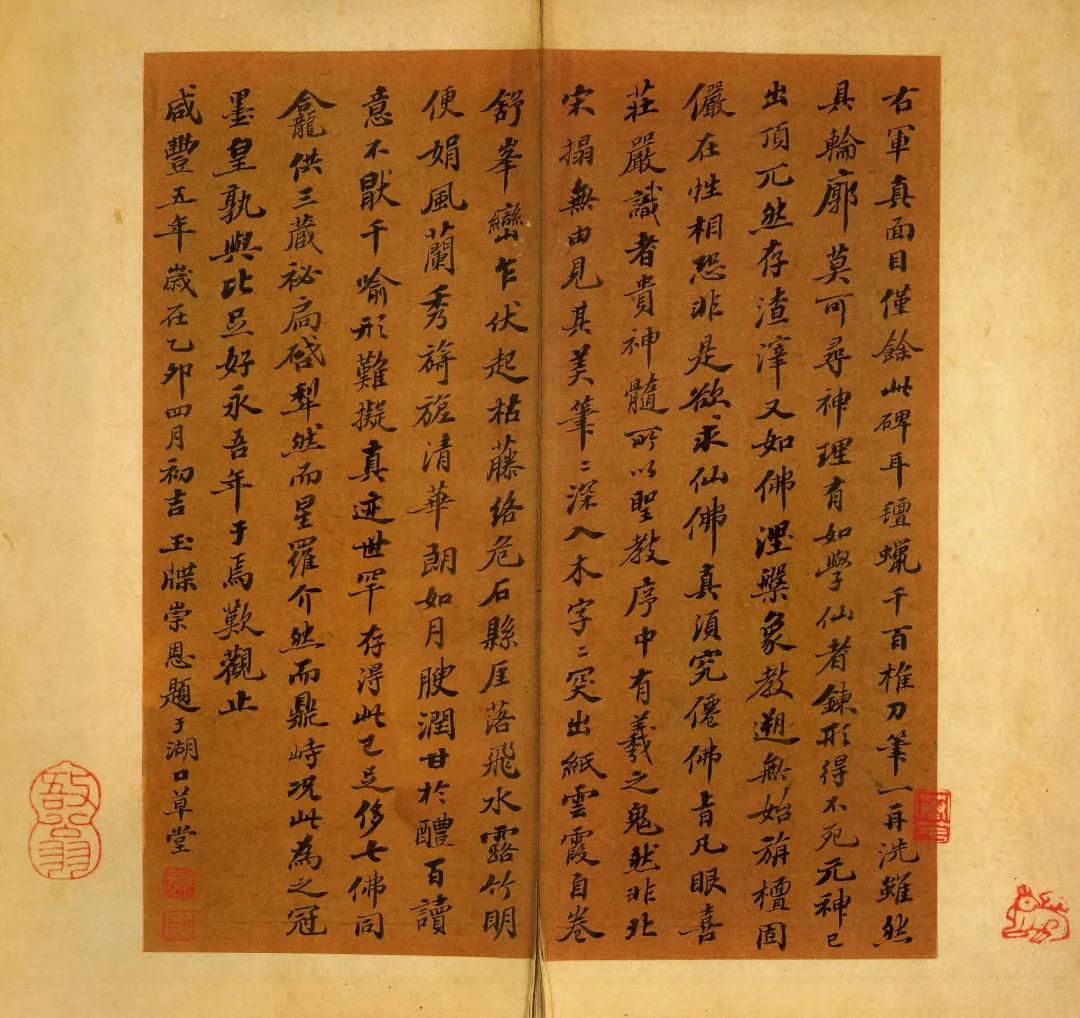 右軍真面目僅餘此碑耳氊蠟千百椎刀筆一再洗雖然
具輪廓莫可尋神理有如學仙者鍊形得不死元神已
出頂兀然存渣滓又如佛涅槃象教遡無始旃檀固
儼在性相恐非是欲求仙佛真須究僊佛旨凡眼喜
莊嚴識者貴神髓所以聖教序中有羲之鬼然非北
宋搨無由見其美筆〻深入木字〻突出紙雲霞自卷
舒峯巒乍伏起枯藤絡危石縣厓落飛水露竹明
便娟風蘭秀旖旎清華朗如月腴潤甘於醴百讀
意不猒千喻形難擬真迹世罕存得此已足侈七佛同
龕供三藏祕扃啓犁然而星羅介然而鼎峙況此為之冠
墨皇孰與比息好永吾年于焉歎觀止
咸豐五年歲在乙卯四月初吉玉牒崇恩題于湖口草堂